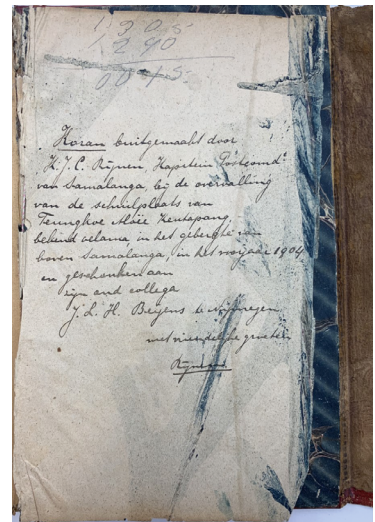 1305
290
0015
Koran buitgemaakt door
H.J.C. Rijnen, Kapitein Postcomdt
van Samalanga, bij de overvalling
van de schuilplaats van
Teungkoe
bekend oelama, in het gebergte van
boven Samalanga, in het voorjaar 1904
en geschonken aan
zijn oud collega
J.L.H. Beijens te Nijmegen
met vriendelijke groeten
Rijnen